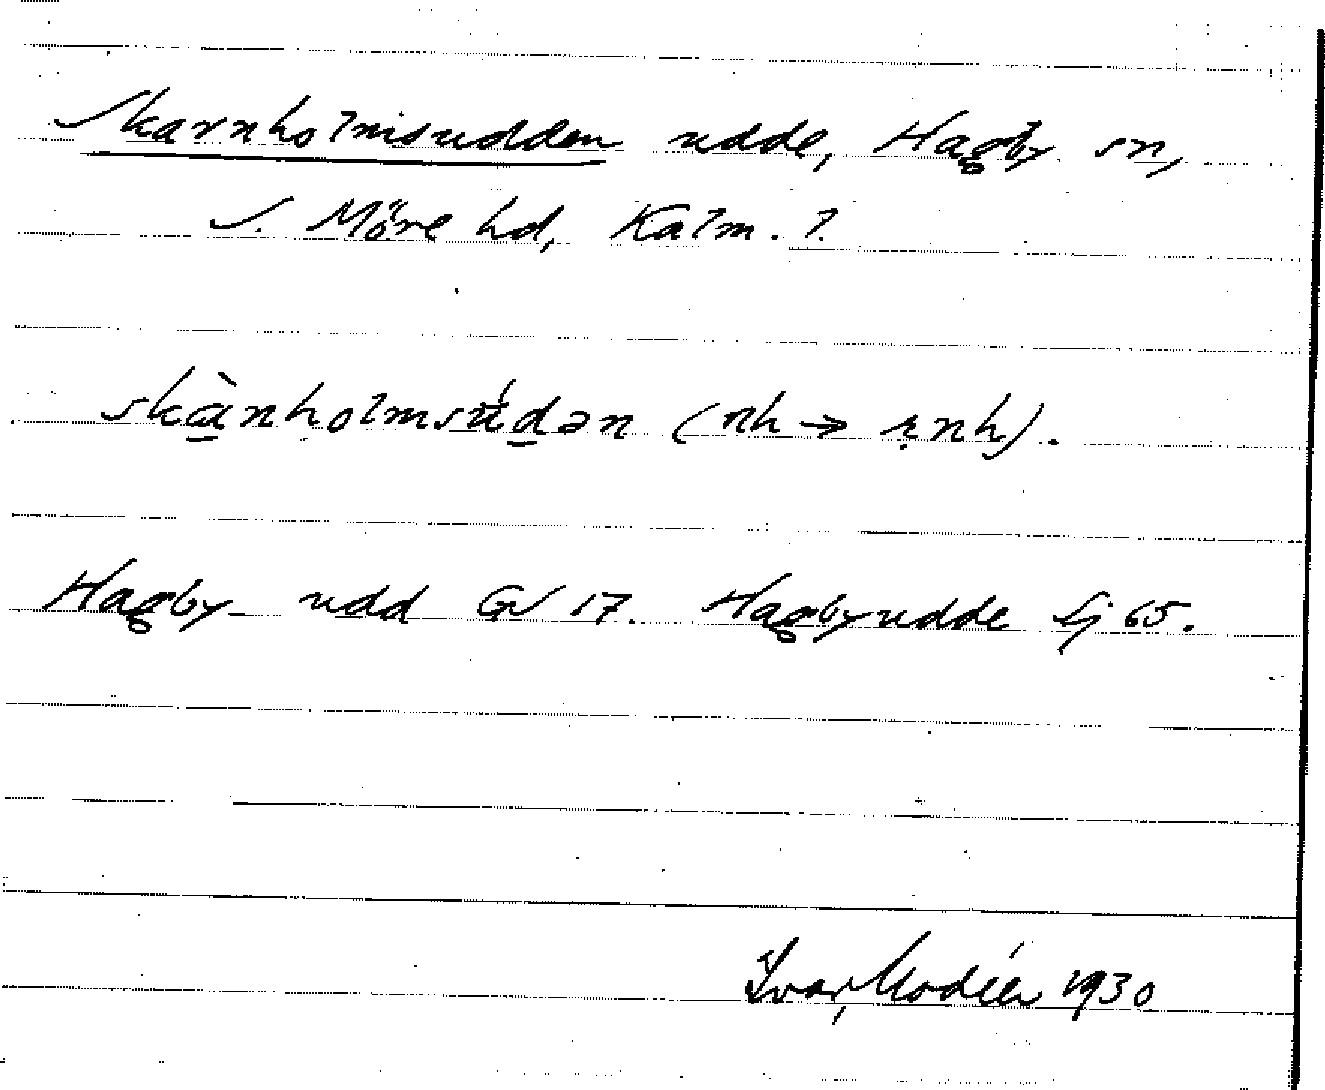 Skarnholmsudden udde, Hagby sn,
S. Möre hd, Kalm. l.
skànholmsúdən (nh → rnh).
Hagby udd GV 17. Hagbyudde Ej 65.
Ivar Modéer 1930